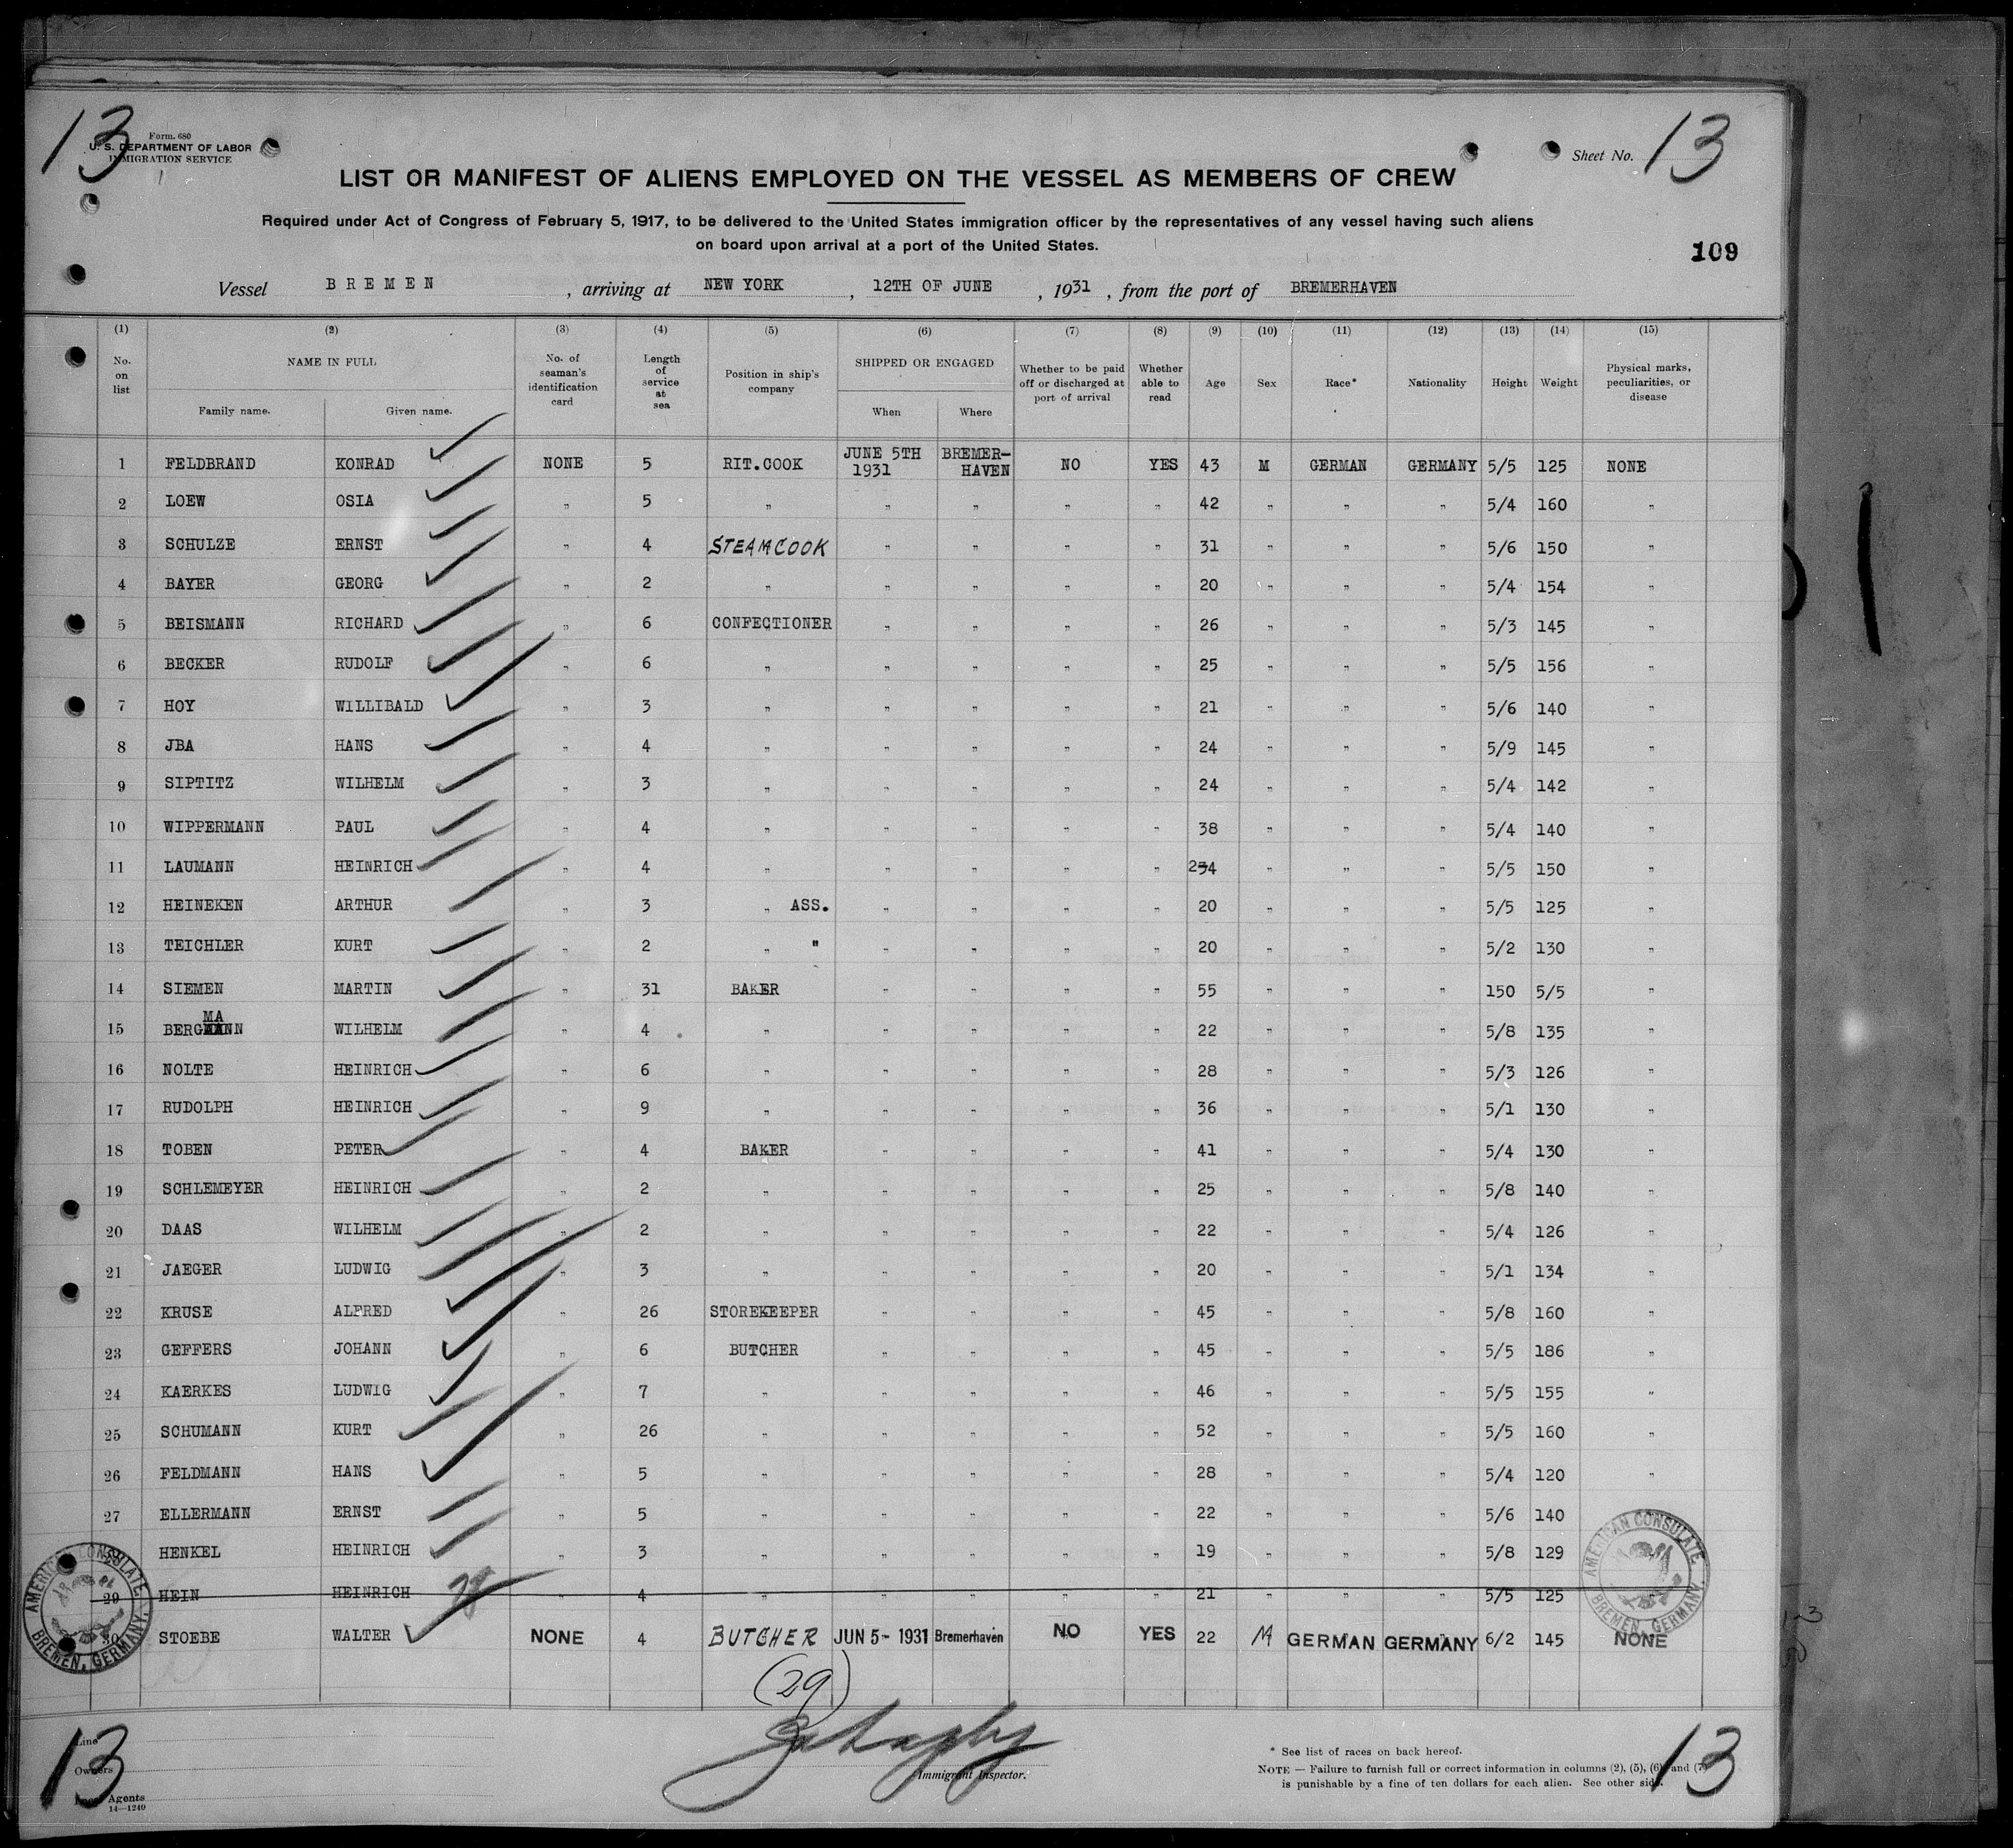 13
Form. 680
U. S. DEPARTMENT OF LABOR
IMMIGRATION SERVICE
Sheet No. 13
LIST OR MANIFEST OF ALIENS EMPLOYED ON THE VESSEL AS MEMBERS OF CREW
Required under Act of Congress of February 5, 1917, to be delivered to the United States immigration officer by the representatives of any vessel having such aliens
on board upon arrival at a port of the United States.
109
Vessel BREMEN , arriving at NEW YORK , 12TH OF JUNE , 1931 , from the port of BREMERHAVEN
(1) (2) (3) (4) (5) (6) (7) (8) (9) (10) (11) (12) (13) (14) (15)
No. on list NAME IN FULL Family name. Given name. No. of seaman's identification card Length of service at sea Position in ship's company SHIPPED OR ENGAGED When Where Whether to be paid off or discharged at port of arrival Whether able to read Age Sex Race* Nationality Height Weight Physical marks, peculiarities, or disease
1 FELDBRAND KONRAD NONE 5 RIT.COOK JUNE 5TH 1931 BREMER-HAVEN NO YES 43 M GERMAN GERMANY 5/5 125 NONE
2 LOEW OSIA " 5 " " " " " 42 " " " 5/4 160 "
3 SCHULZE ERNST " 4 STEAMCOOK " " " " 31 " " " 5/6 150 "
4 BAYER GEORG " 2 " " " " " 20 " " " 5/4 154 "
5 BEISMANN RICHARD " 6 CONFECTIONER " " " " 26 " " " 5/3 145 "
6 BECKER RUDOLF " 6 " " " " " 25 " " " 5/5 156 "
7 HOY WILLIBALD " 3 " " " " " 21 " " " 5/6 140 "
8 JBA HANS " 4 " " " " " 24 " " " 5/9 145 "
9 SIPTITZ WILHELM " 3 " " " " " 24 " " " 5/4 142 "
10 WIPPERMANN PAUL " 4 " " " " " 38 " " " 5/4 140 "
11 LAUMANN HEINRICH " 4 " " " " " 234 " " " 5/5 150 "
12 HEINEKEN ARTHUR " 3 " ASS. " " " " 20 " " " 5/5 125 "
13 TEICHLER KURT " 2 " " " " " " 20 " " " 5/2 130 "
14 SIEMEN MARTIN " 31 BAKER " " " " 55 " " " 150 5/5 "
15 BERGMANN WILHELM " 4 " " " " " 22 " " " 5/8 135 "
16 NOLTE HEINRICH " 6 " " " " " 28 " " " 5/3 126 "
17 RUDOLPH HEINRICH " 9 " " " " " 36 " " " 5/1 130 "
18 TOBEN PETER " 4 BAKER " " " " 41 " " " 5/4 130 "
19 SCHLEMEYER HEINRICH " 2 " " " " " 25 " " " 5/8 140 "
20 DAAS WILHELM " 2 " " " " " 22 " " " 5/4 126 "
21 JAEGER LUDWIG " 3 " " " " " 20 " " " 5/1 134 "
22 KRUSE ALFRED " 26 STOREKEEPER " " " " 45 " " " 5/8 160 "
23 GEFFERS JOHANN " 6 BUTCHER " " " " 45 " " " 5/5 186 "
24 KAERKES LUDWIG " 7 " " " " " 46 " " " 5/5 155 "
25 SCHUMANN KURT " 26 " " " " " 52 " " " 5/5 160 "
26 FELDMANN HANS " 5 " " " " " 28 " " " 5/4 120 "
27 ELLERMANN ERNST " 5 " " " " " 22 " " " 5/6 140 "
28 HENKEL HEINRICH " 3 " " " " " 19 " " " 5/8 129 "
29 HEIN HEINRICH " 4 " " " " " 21 " " " 5/5 125
30 STOEBE WALTER NONE 4 BUTCHER JUN 5- 1931 Bremerhaven NO YES 22 M GERMAN GERMANY 6/2 145 NONE
AMERICAN CONSULATE BREMEN, GERMANY.
AMERICAN CONSULATE BREMEN, GERMANY.
(29)
13
Line
Owners
Agents
14—1240
Immigrant Inspector.
* See list of races on back hereof.
NOTE — Failure to furnish full or correct information in columns (2), (5), (6) and (7)
is punishable by a fine of ten dollars for each alien. See other side.
13